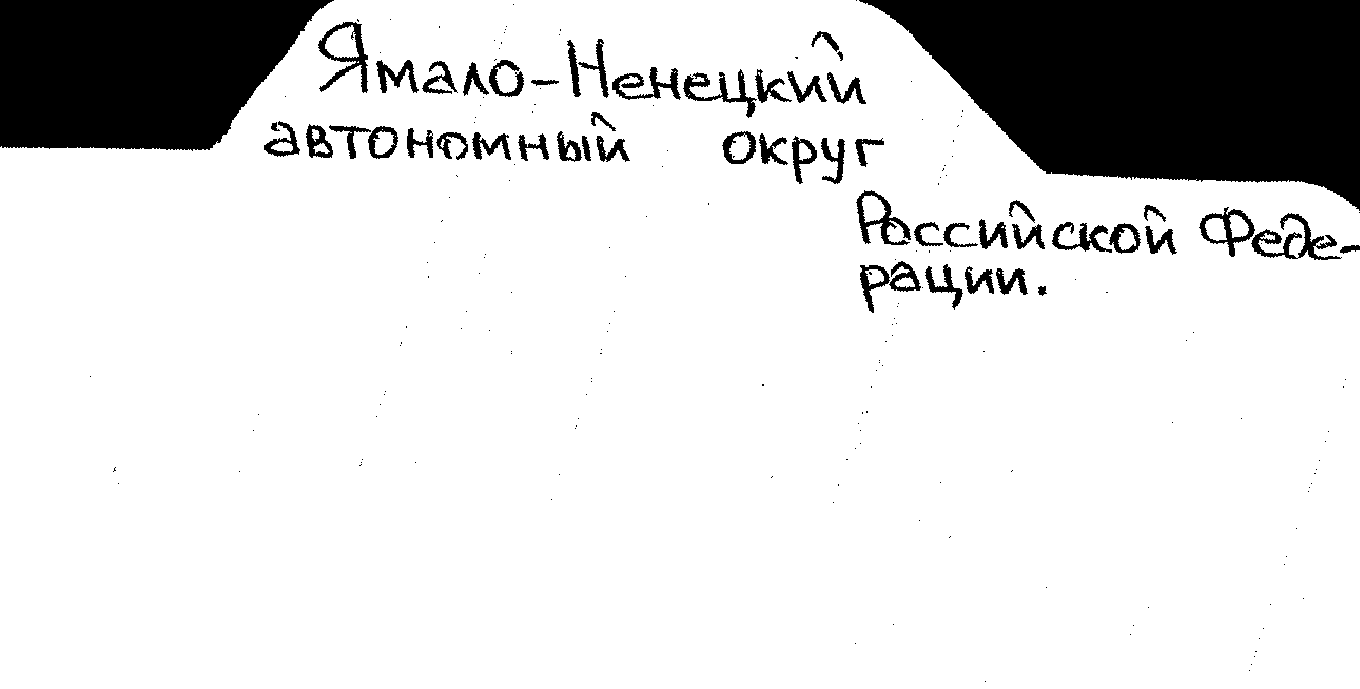 Ямало-Ненецкий
автономный округ
Российской Феде-
рации.